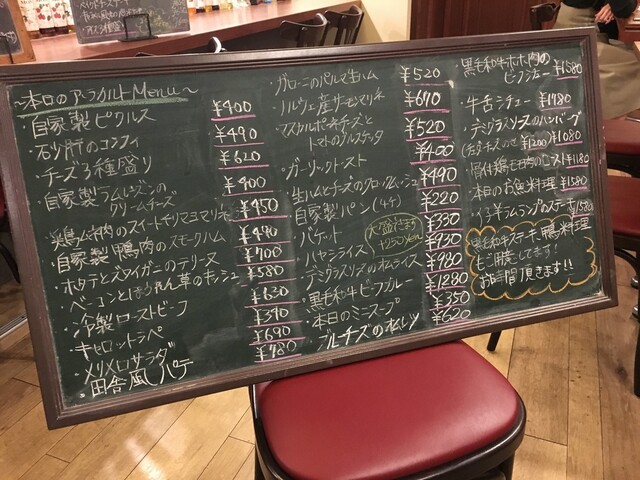 ～本日のアラカルトMenu～
・自家製ピクルス ¥400
・砂肝のコンフィ ¥490
・チーズ3種盛り ¥620
・自家製ラムレーズンの
クリームチーズ ¥400
・鶏ムネ肉のスイートチリマヨマリネ ¥450
・自家製鴨肉のスモークハム ¥490
・ホタテとズワイガニのテリーヌ ¥700
・ベーコンとほうれん草のキッシュ ¥580
・冷製ローストビーフ ¥630
・キャロットラペ ¥340
・メリメロサラダ ¥690
・田舎風パテ ¥480
・グローニのパルマ生ハム ¥520
・ノルウェー産サーモンマリネ ¥670
・マスカルポーネチーズと
トマトのブルスケッタ ¥520
・ガーリックトースト ¥400
・生ハムとチーズのクロックムッシュ ¥490
・自家製パン(4ケ) ¥220
・バゲット ¥330
・ハヤシライス ¥930
大盛できます
+250yen
・デミグラスソースのオムライス ¥980
・黒毛和牛ビーフカレー ¥1280
・本日のミニスープ ¥350
・ブルーチーズのオムレツ ¥620
・黒毛和牛ホホ肉の
ビーフシチュー ¥1580
・牛舌シチュー ¥1780
・デミグラスソースのハンバーグ ¥1080
¥200
・骨付鶏モモ肉のコンフィ ¥1180
・本日のお魚料理 ¥1580
・仔羊ラムランプのステーキ ¥1580
黒毛和牛ステーキ、鴨料理
もご用意してます！
お時間頂きます!!